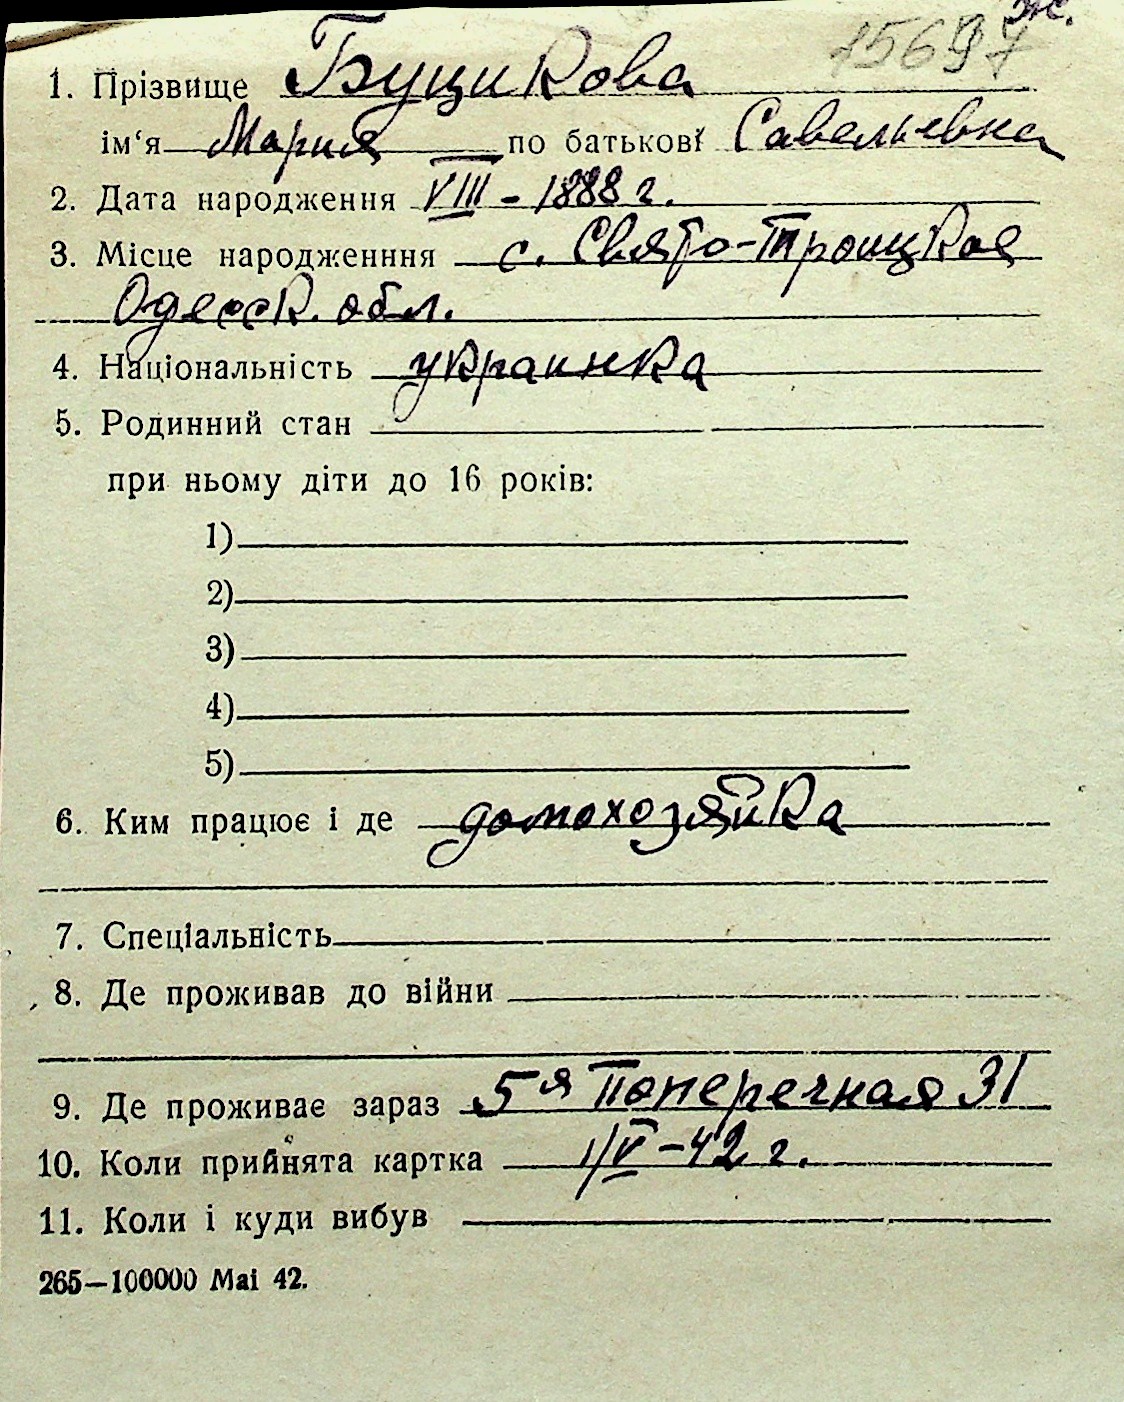 ж.
15697
1. Прізвище Буцикова
ім‘я Мария по батькові Савельевна
2. Дата народження VIII - 1888 г.
3. Місце народженння с. Свято-Троицкое
Одесск. обл.
4. Національність украинка
5. Родинний стан
при ньому діти до 16 років:
1)
2)
3)
4)
5)
6. Ким працює і де домохозяйка
7. Спеціальність
8. Де проживав до війни
9. Де проживає зараз 5я Поперечная 31
10. Коли прийнята картка 1/V-42 г.
11. Коли і куди вибув
265—100000 Mai 42.